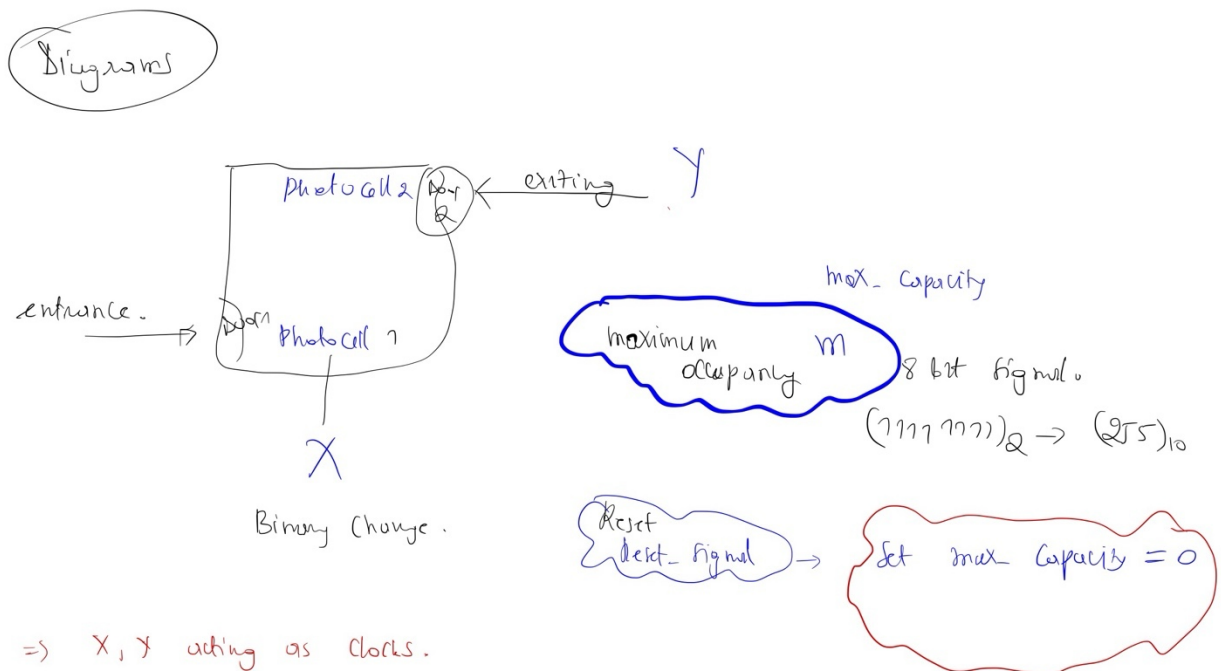 Diagrams
Photocell 2
Door 2
exiting
Y
entrance.
Door 1
Photocell 1
X
Binary Change.
max_capacity
maximum m
occupancy
8 bit signal.
(1111 1111)2 → (255)10
Reset
Reset_signal →
Set max_capacity = 0
=> X, Y acting as clocks.